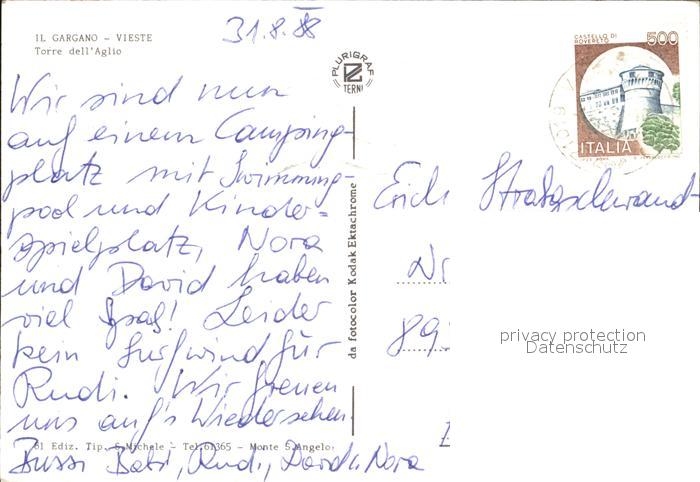 IL GARGANO - VIESTE
Torre dell'Aglio
31.8.88
PLURIGRAF
TERNI
CASTELLO DI
ROVERETO
500
ITALIA
Wir sind nun
auf einem Camping-
platz mit Swimming-
pool und Kinder-
spielplatz, Nora
und David haben
viel Spaß! Leider
kein Surfwind für
Rudi. Wir freuen
uns auf's Wiedersehen.
Bussi Babsi, Rudi, David u. Nora
da fotocolor Kodak Ektachrome
Erich
Nr
89
privacy protection
Datenschutz
61 Ediz. Tip. S. Michele - Tel. 61365 - Monte S. Angelo